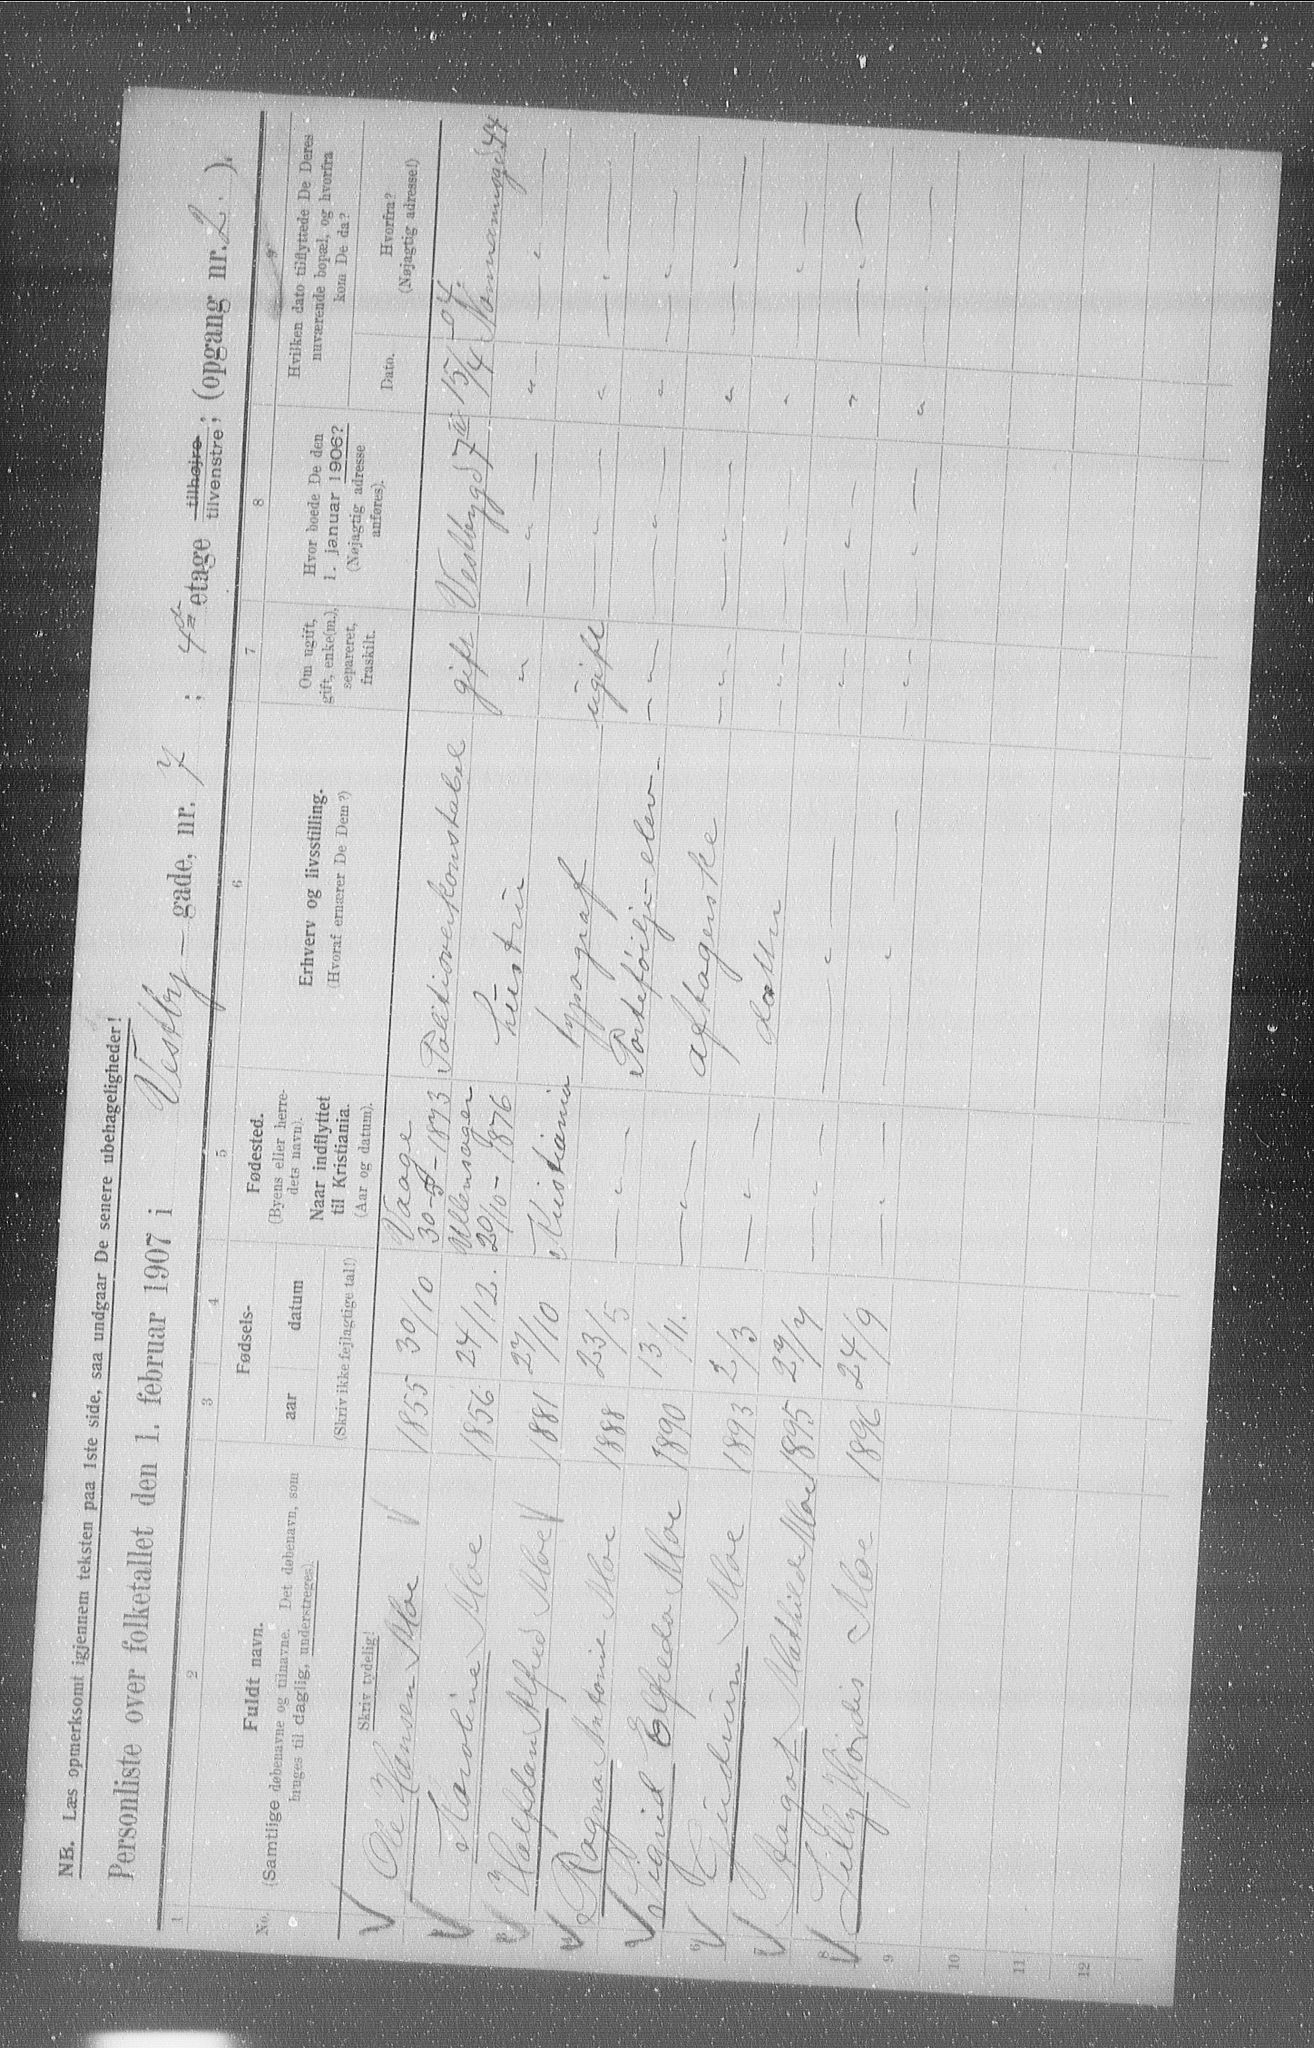 NB. Læs opmerksomt igjennem teksten paa 1ste side, saa undgaar De senere ubehageligheder!
Personliste over folketallet den 1. februar 1907 i Vestby – gade, nr. 7 ; 4de etage tilhøjre tilvenstre; (opgang nr. 2. ).
1 2 3 4 5 6 7 8 9
No. Fuldt navn. (Samtlige døbenavne og tilnavne. Det døbenavn, som bruges til daglig, understreges). Skriv tydelig!
Fødsels- aar datum (Skriv ikke fejlagtige tal!)
Fødested. (Byens eller herredets navn). Naar indflyttet til Kristiania. (Aar og datum).
Erhverv og livsstilling. (Hvoraf ernærer De Dem?)
Om ugift, gift, enke(m.), separeret, fraskilt.
Hvor boede De den 1. januar 1906? (Nøjagtig adresse anføres).
Hvilken dato tilflyttede De Deres nuværende bopæl, og hvorfra kom De da? Dato. Hvorfra? (Nøjagtig adresse!)
Ole Hansen Moe 1855 30/10 Vaage 30-5-1873 Politioverkonstabel gift Vestbygd 7 IV 15/4 04. Normannsgd 44
Karoline Moe 1856 24/12. Ullensager 20/10-1876 hustru " — " — " — " —
3 Halfdan Alfred Moe 1881 27/10 Kristiania typograf ugift — " — " — " —
Ragna Antonie Moe 1888 23/5 — " — Portefølje-elev - — " — — " — " — " —
Sigrid Elfreda Moe 1890 13/11. — " — aftagerske — " — — " — " — " —
6 Gudrun Moe 1893 2/3 — " — datter — " — — " — " — " —
7 Aagot Mathilde Moe 1895 27/7 — " — — " — — " — — " — " — " —
8 Lilly Hjørdis Moe 1896 24/9 — " — — " — — " — — " — " — " —
9
10
11
12